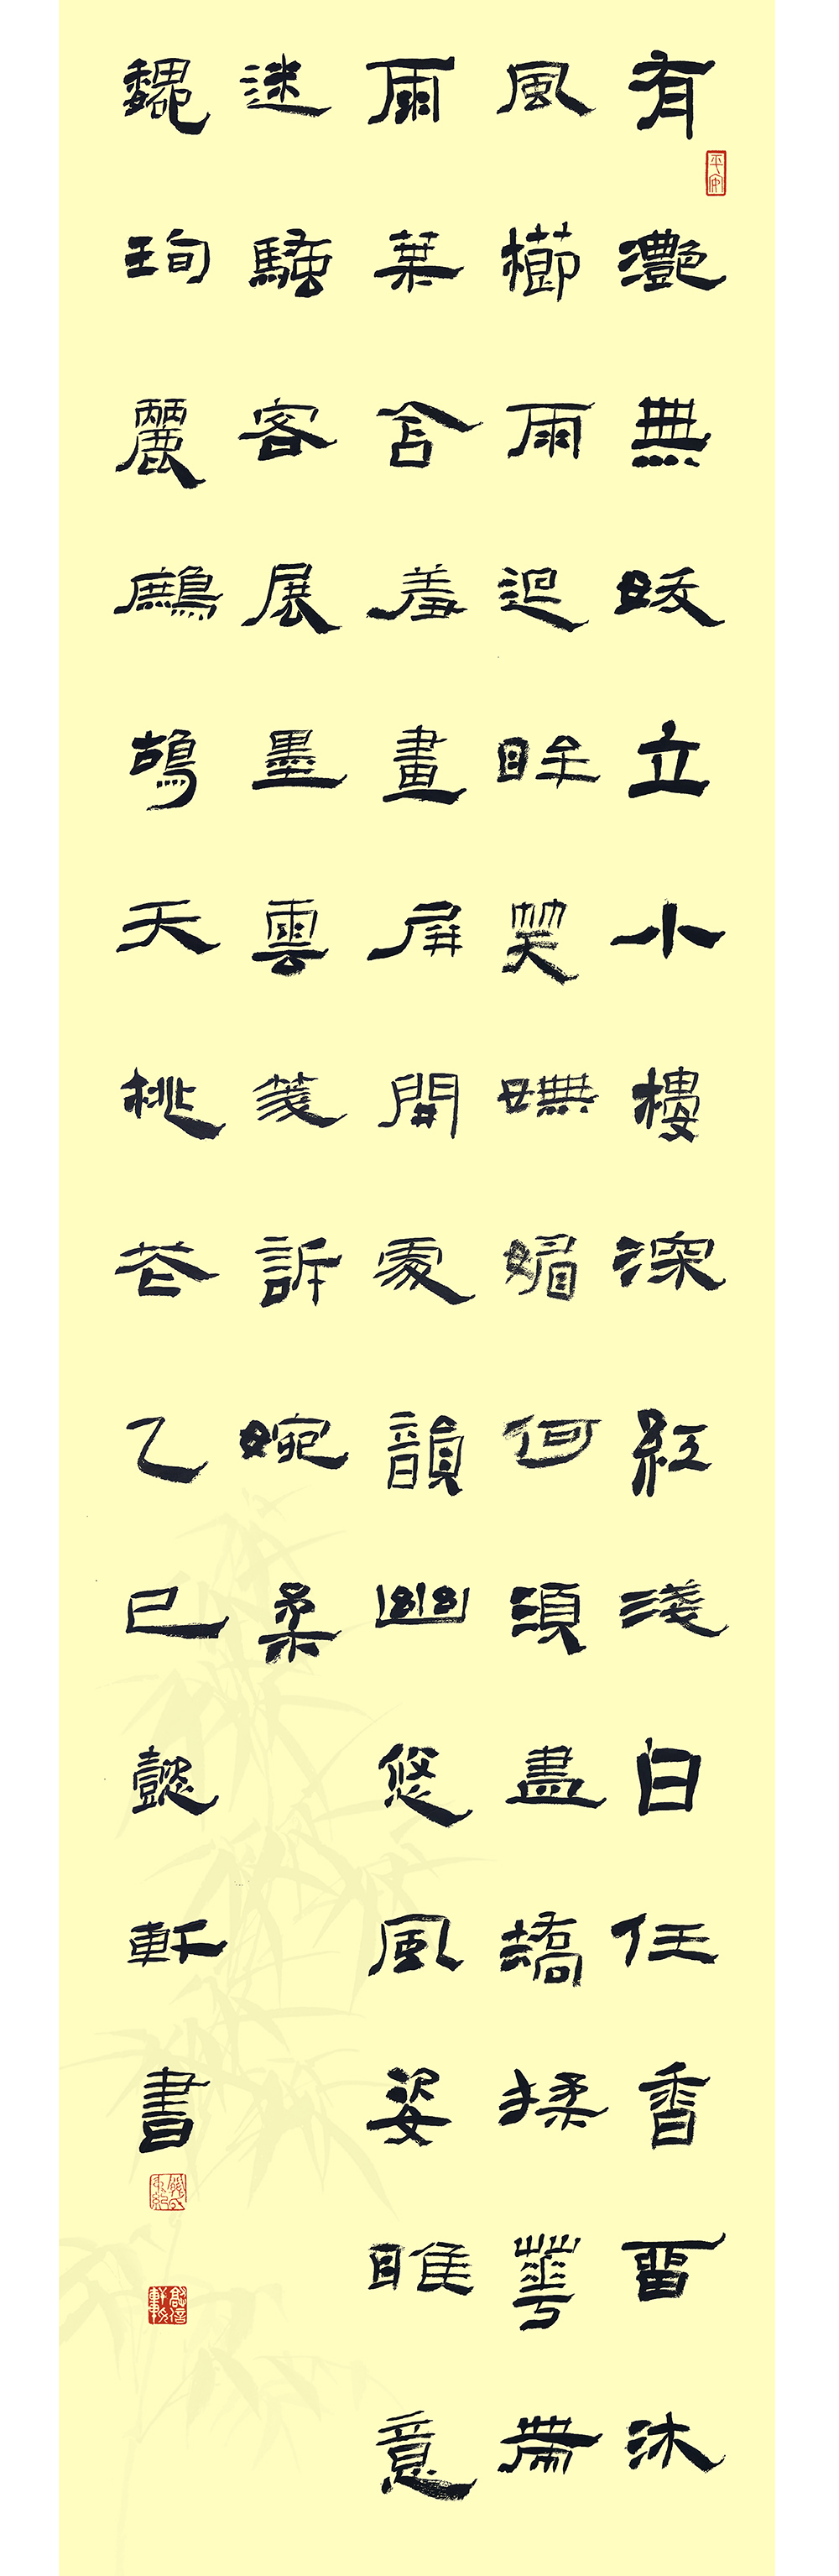 有灩無妖立小樓深紅淺白任香畱沐
風櫛雨迴眸笑嫵媚何須盡矯揉華帶
雨葉含羞畫屏開處韻幽悠風姿睢意
迷騷客展墨雲箋訴婉柔
魏珣麗鷓鴣天桃花乙巳懿軒書
平安